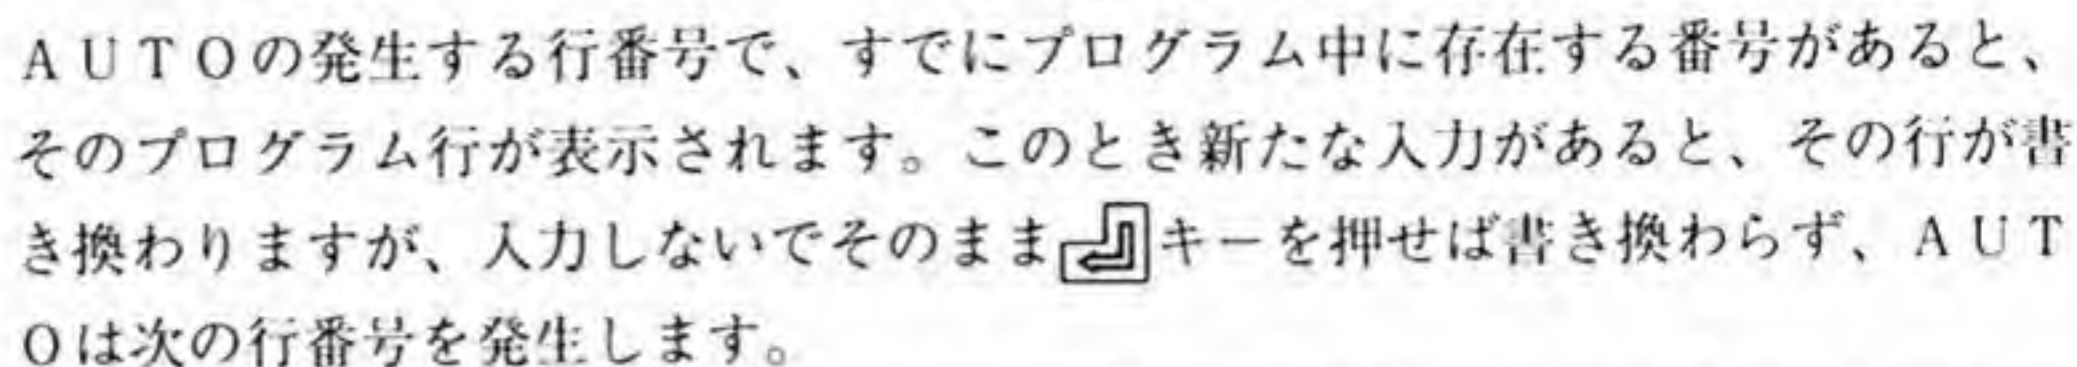 AUTOの発生する行番号で、すでにプログラム中に存在する番号があると、
そのプログラム行が表示されます。このとき新たな入力があると、その行が書
き換わりますが、入力しないでそのまま⏎キーを押せば書き換わらず、AUT
Oは次の行番号を発生します。